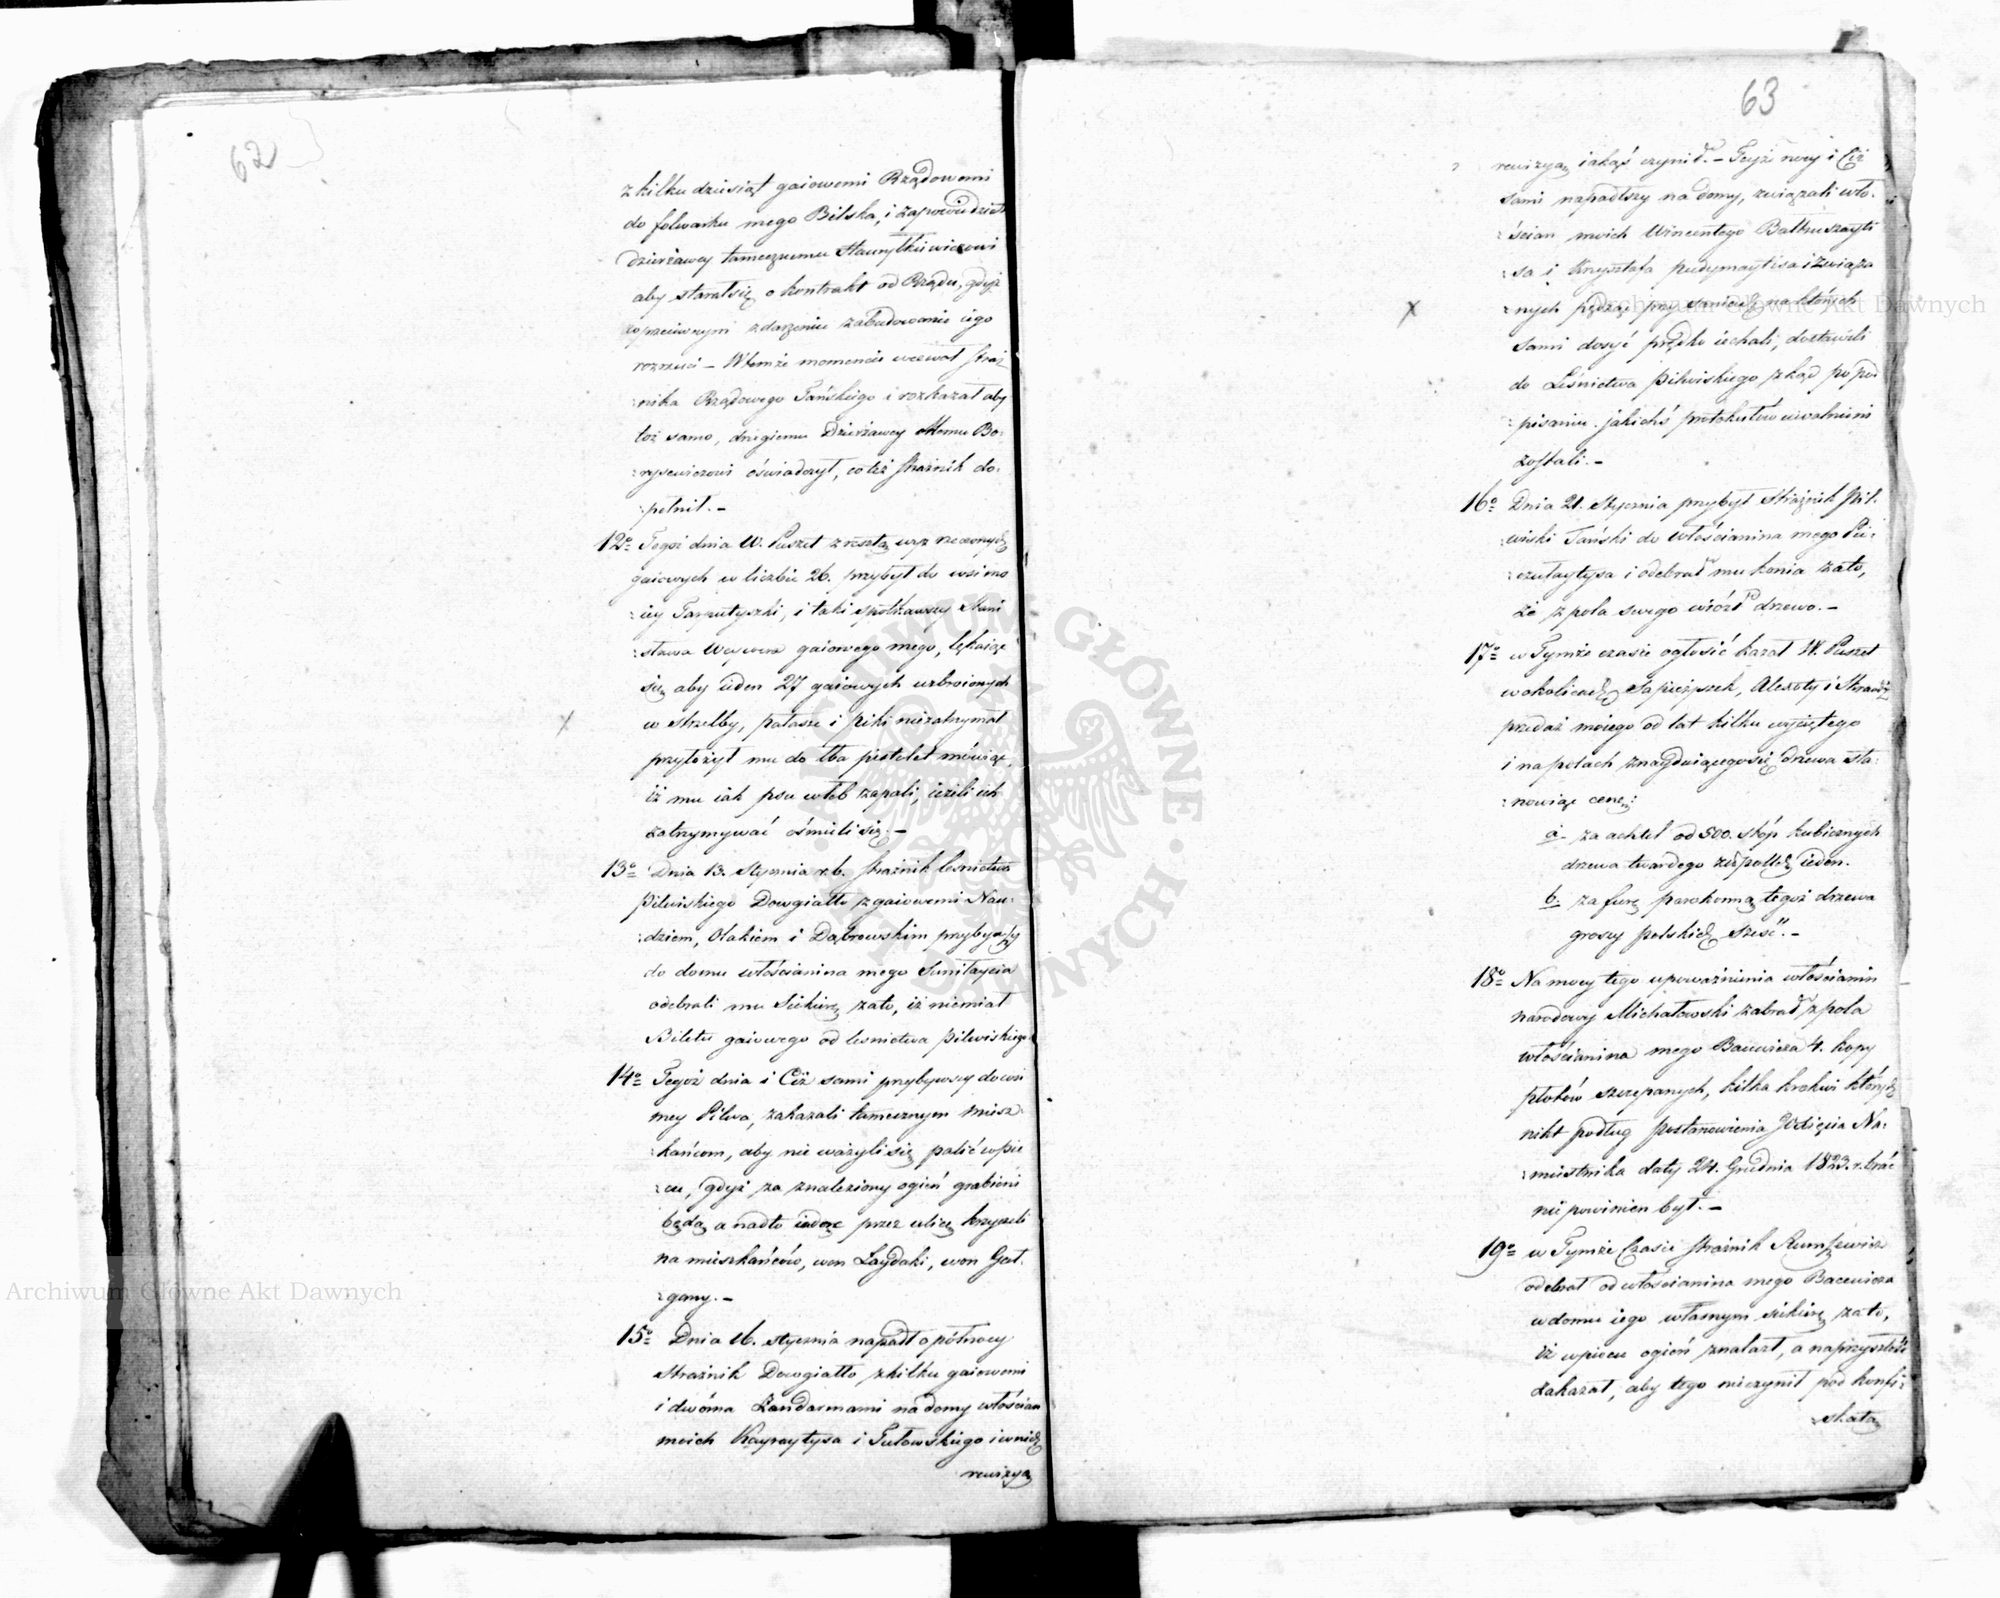 62
z kilku dziesiąt gaiowemi Rządowemi
do folwarku mego Bilska, i zapowiedział
Dzierżawcy tamecznemu
aby starał się o kontrakt od Rządu, gdyż
w przeciwnym zdarzeniu zabudowanie iego
rozrzuci – W temże momencie wezwał straż
:nika Rządowego Tańskiego i rozkazał aby
toż samo, drugiemu Dzierżawcy Memu Bo:
:rysewiczowi oświadczył, co też strażnik do:
:pełnił. –
12o Tegoż dnia W. Puszet z resztą wyż rzeczonych
gaiowych w liczbie 26. przybył do wsi mo
:iey Tarputyszki, i taki spotkawszy Stani
:sława gaiowego mego, lękaiąc
się aby ieden 27 gaiowych uzbroionych
w strzelby, pałasze i piki niezatrzymał
przyłożył mu do łba pistolet mówiąc,
iż mu iak psu w łeb zapali, ieżeli ich
zatrzymywać ośmieli się. –
13o Dnia 13. Stycznia r. b. strażnik lesnictwa
Pilwiskiego Dowgiałło z gaiowemi Nau:
:dziem, Olakiem i Dąbrowskim przybywszy
do domu włościanina mego
odebrali mu Siekierę zato, iż niemiał
Biletu gaiowego od lesnictwa Pilwiskiego
14o Tegoż dnia i Ciż sami przybywszy do wsi
mey Pilwa, zakazali tamecznym miesz:
:kańcom, aby nie ważyli się palić w pie
:cu, gdyż za znaleziony ogień grabieni
będą a nadto iadąc przez ulicę krzyczeli
na mieszkańców, won Łaydaki, won Gał:
:gany. –
15o Dnia 16. stycznia napadł o północy
Strażnik Dowgiałło z kilku gaiowemi
i dwóma Żandarmami na domy włościan
moich Kayraytysa i Tutowskiego i w nich
rewizyą
63
rewizyą iakąś czynił. – Teyże nocy i Ciż
sami napadłszy na domy, związali wło:
:ścian moich Wincentego Baltruszayti
:sa i Krzysztofa Pudymaytisa i związa
:nych pędząc przy saniach na których
sami dosyć prędko iechali, dostawili
do Leśnictwa Pilwiskiego zkąd po pod
:pisaniu jakichś protokułów uwolnieni
zostali. –
16o Dnia 21. Stycznia przybył Strażnik Pil:
:wiski Tański do włościanina mego Pie:
:czulaytysa i odebrał mu konia zato,
że z pola swego wiózł drzewo. –
17o w Tymże czasie ogłosić kazał W. Puszet
w okolicach Sapieżyszek, Alexoty i
przedaż moiego od lat kilku wyciętego
i na polach znayduiącego się drzewa sta:
:nowiąc cenę:
a. za achtel od 500. stóp kubicznych
drzewa twardego złt polski ieden.
b. za furę parokonną tegoż drzewa
groszy polskich sześć. –
18o Na mocy tego upoważnienia włościanin
narodowy Michałowski zabrał z pola
włościanina mego Bacewicza 4. kopy
płotów szczepanych, kilka krokwi których
nikt podług postanowienia Xięcia Na:
:miestnika daty 24. Grudnia 1823. r. brać
nie powinien był. –
19o w Tymże Czasie strażnik Rumszewicz
odebrał od włościanina mego Bacewicza
w domu iego własnym siekierę zato,
iż w piecu ogień znalazł, a na przyszłość
zakazał, aby tego nieczynił pod konfi:
:skatą
Archiwum Główne Akt Dawnych
Archiwum Główne Akt Dawnych
ARCHIWUM GŁÓWNE AKT DAWNYCH